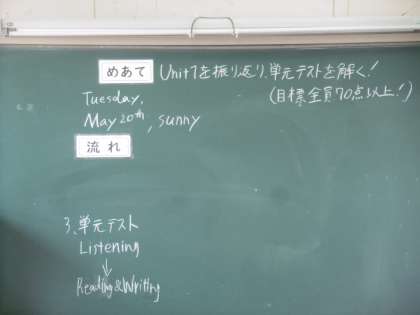 めあて Unit1を振り返り、単元テストを解く!
(目標全員70点以上!)
Tuesday,
May 20th, sunny
流れ
3、単元テスト
Listening
↓
Reading&Writing